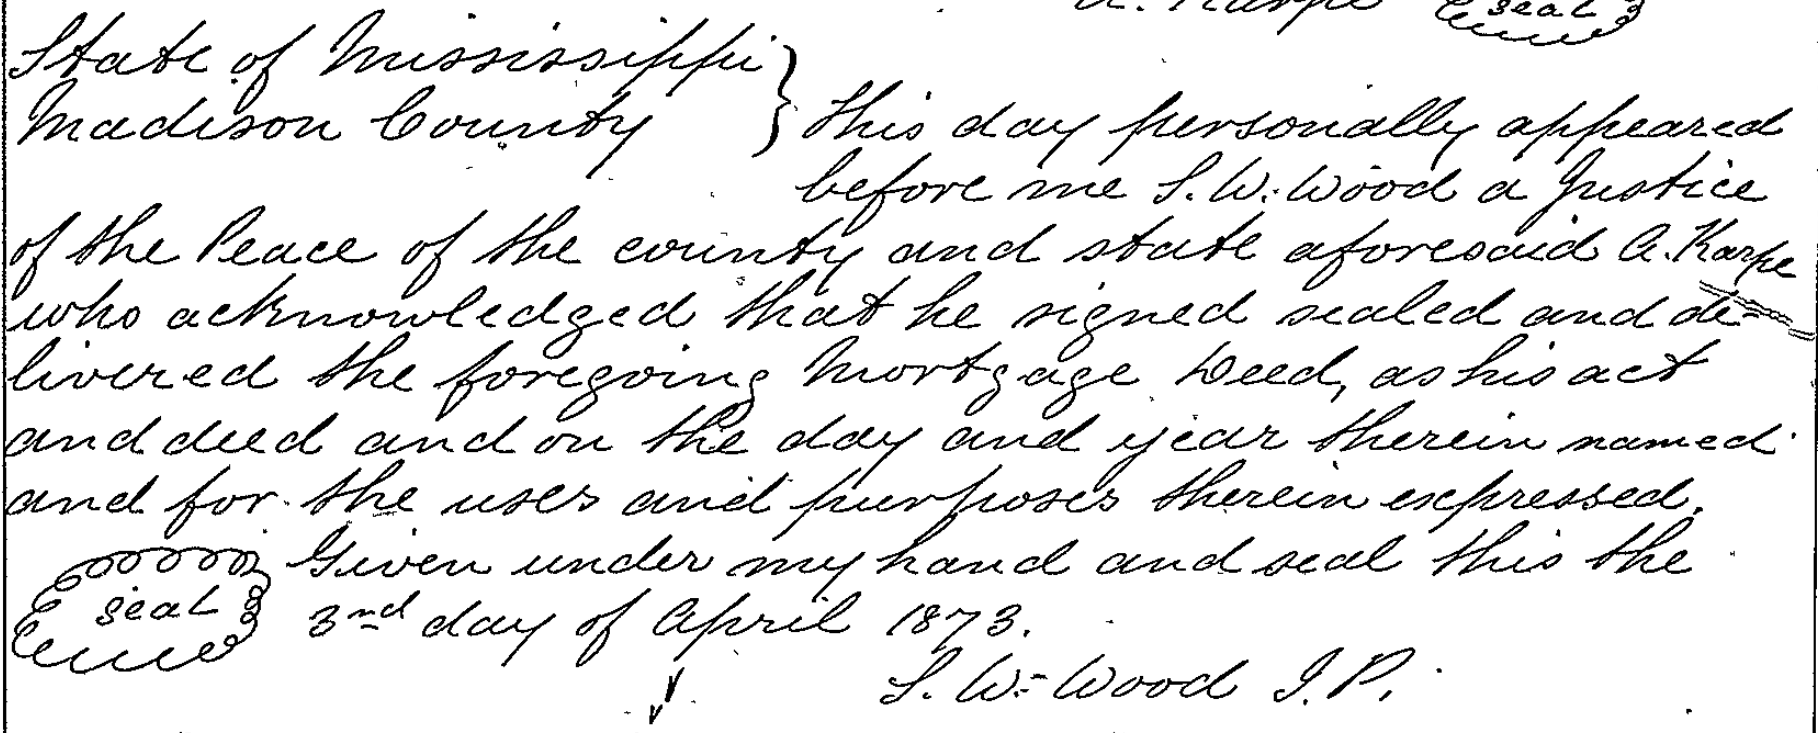 A. Karpe seal
State of Mississippi
Madison County } This day personally appeared
before me S. W. Wood a Justice
of the Peace of the county and state aforesaid A. Karpe
who acknowledged that he signed sealed and de-
livered the foregoing Mortgage Deed, as his act
and deed and on the day and year therein named
and for the uses and purposes therein expressed.
Given under my hand and seal this the
seal 3nd day of April 1873.
S. W. Wood J. P.